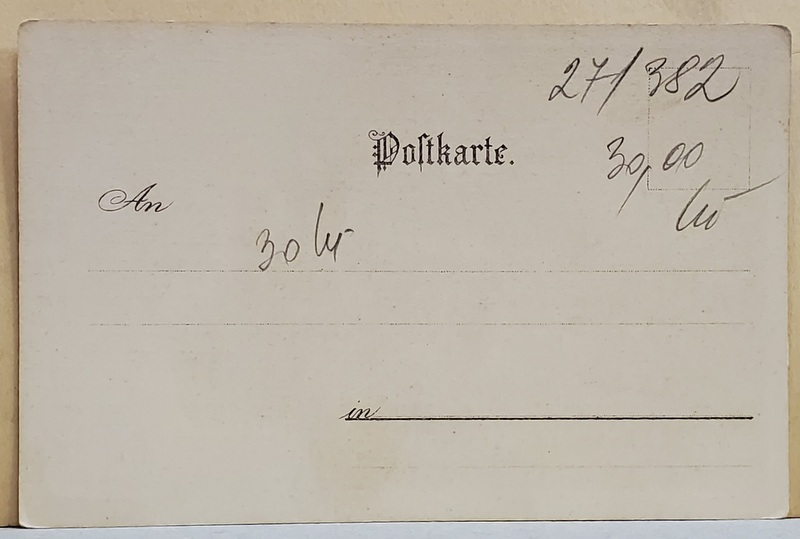 27/382
Postkarte.
30,00
An
30
in